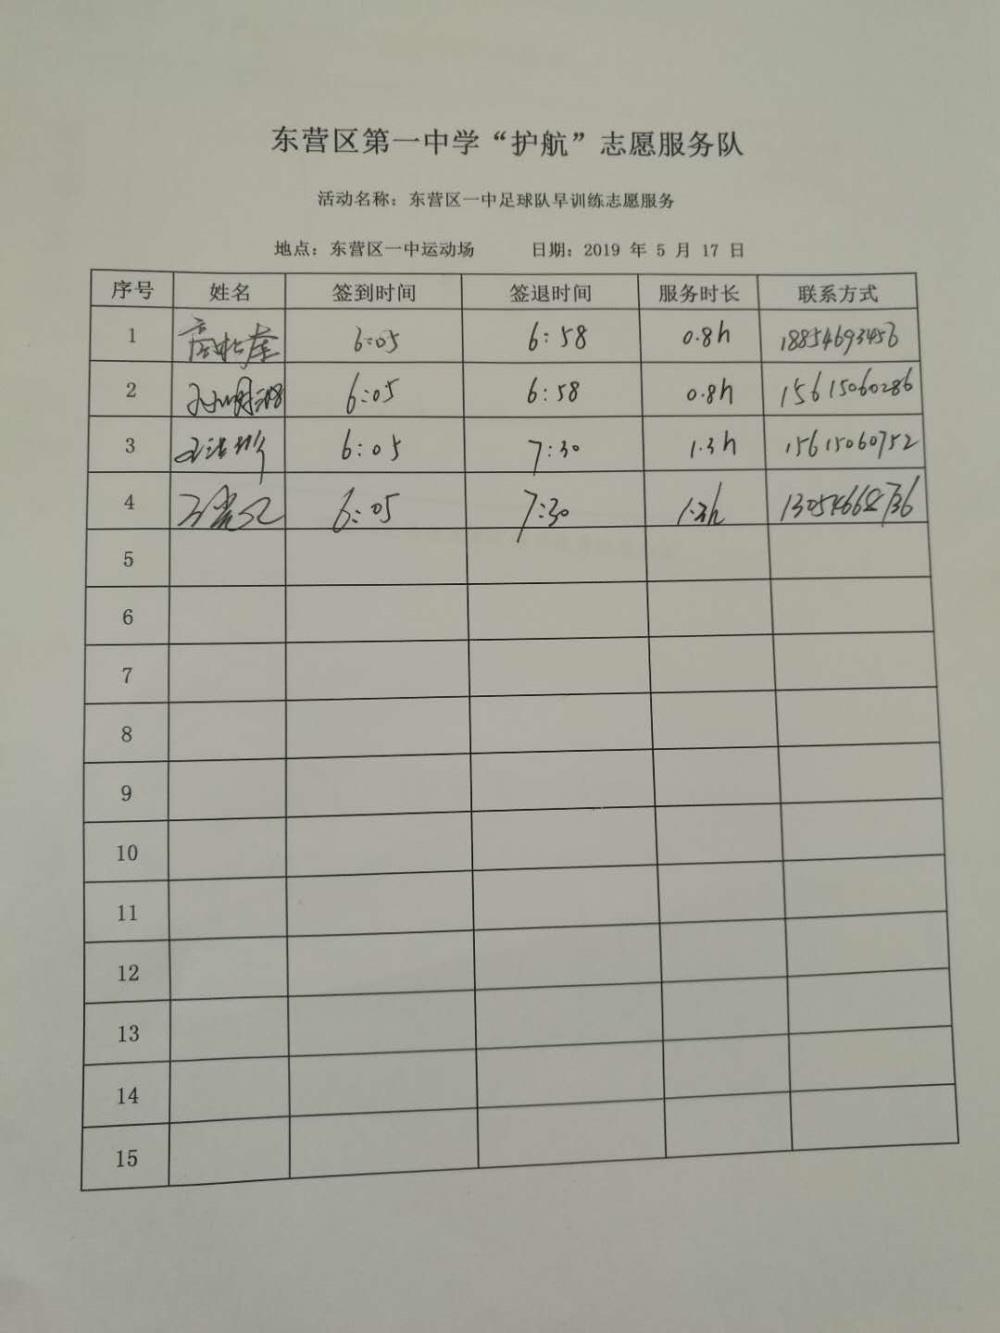 东营区第一中学“护航”志愿服务队
活动名称：东营区一中足球队早训练志愿服务
地点：东营区一中运动场 日期：2019 年 5 月 17 日
序号 姓名 签到时间 签退时间 服务时长 联系方式
1 6:05 6:58 0.8h 18854693456
2 6:05 6:58 0.8h 15615060286
3 6:05 7:30 1.3h 15615060752
4 6:05 7:30 1.3h
5
6
7
8
9
10
11
12
13
14
15